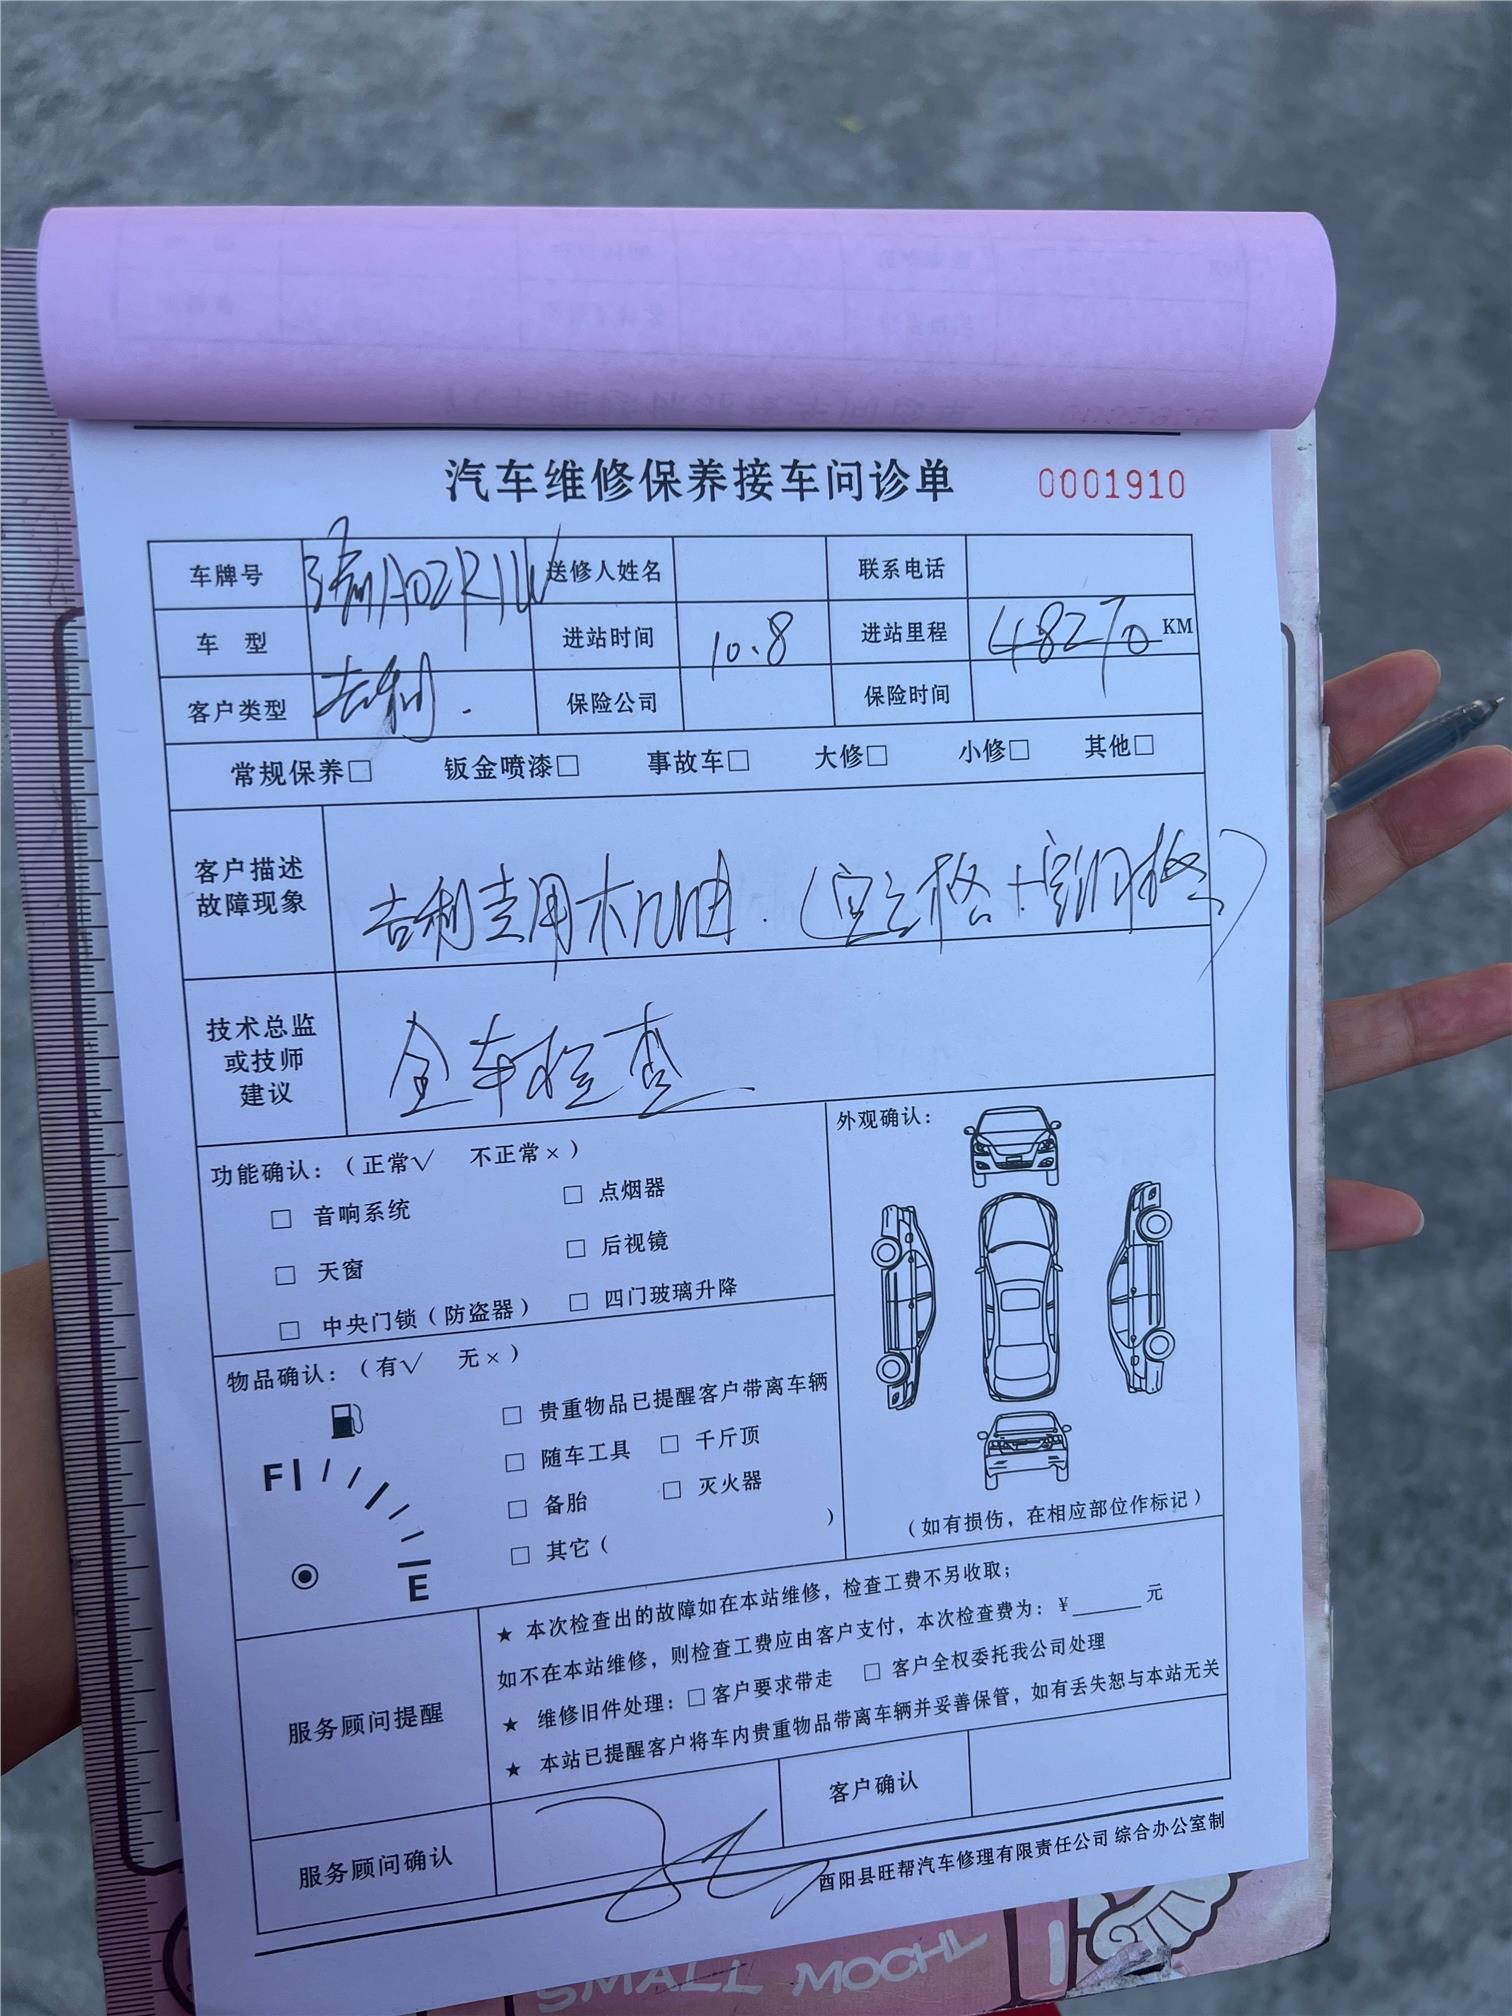 汽车维修保养接车问诊单 0001910
车牌号 送修人姓名 联系电话
车 型 进站时间 10.8 进站里程 48270 KM
客户类型 吉利. 保险公司 保险时间
常规保养□ 钣金喷漆□ 事故车□ 大修□ 小修□ 其他□
客户描述
故障现象
吉利专用机油.(空气格+空调格)
技术总监
或技师
建议
全车检查
功能确认:(正常√ 不正常×)
□ 音响系统 □ 点烟器
□ 天窗 □ 后视镜
□ 中央门锁(防盗器) □ 四门玻璃升降
外观确认:
(如有损伤,在相应部位作标记)
物品确认:(有√ 无×)
F
E
□ 贵重物品已提醒客户带离车辆
□ 随车工具 □ 千斤顶
□ 备胎 □ 灭火器
□ 其它( )
服务顾问提醒
★ 本次检查出的故障如在本站维修,检查工费不另收取;
如不在本站维修,则检查工费应由客户支付,本次检查费为:¥______元
★ 维修旧件处理:□客户要求带走 □ 客户全权委托我公司处理
★ 本站已提醒客户将车内贵重物品带离车辆并妥善保管,如有丢失恕与本站无关
服务顾问确认 客户确认
酉阳县旺帮汽车修理有限责任公司 综合办公室制
SMALL MOCHL